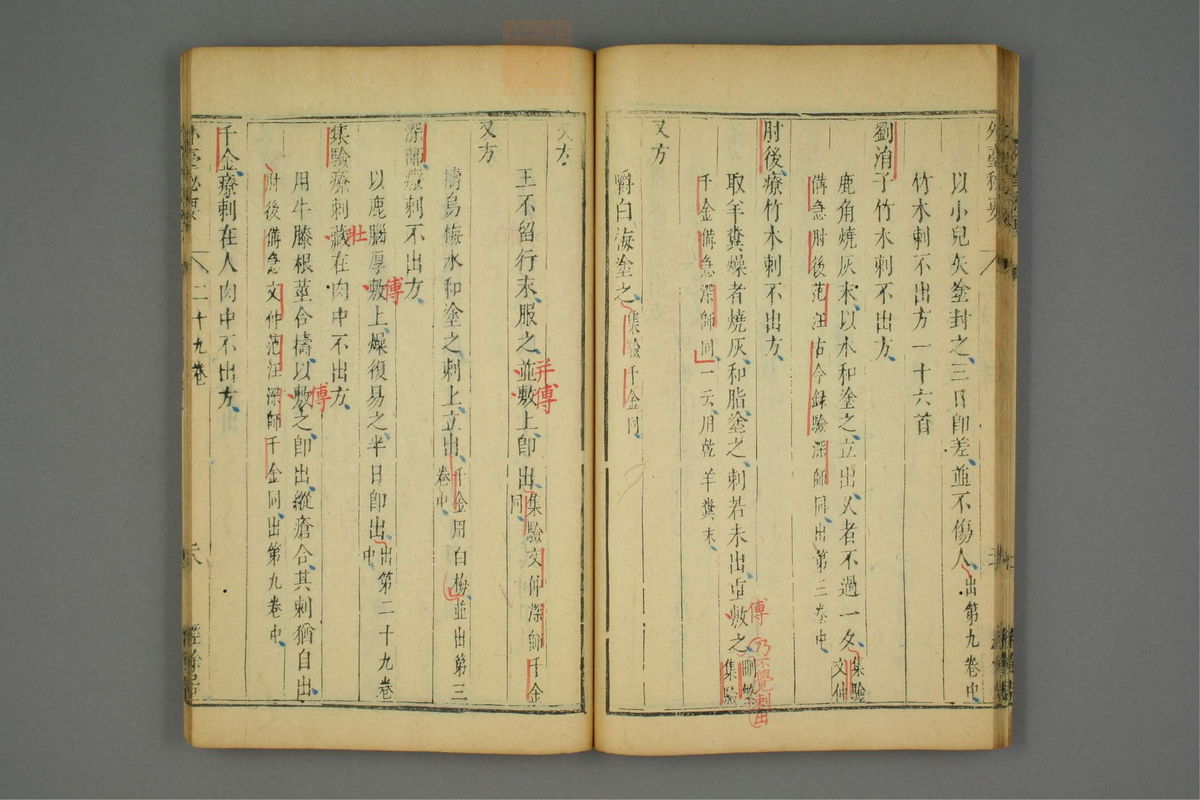 以小兒矢塗封之三日即差並不傷人出第九卷中
竹木刺不出方一十六首
劉涓子竹木刺不出方
鹿角燒灰末以水和塗之立出久者不過一夕集驗文仲
備急肘後范汪古今錄驗深師同出第三卷中
肘後療竹木刺不出方
取羊糞燥者燒灰和脂塗之刺若未出重敷之刪繁集驗
傅
乃不覺刺出
千金備急深師同一云用乾羊糞末
又方
嚼白海塗之集驗千金同
外臺秘要
又方
王不留行末服之並敷上即出集驗文仲深師千金同
并傅
又方
擣烏梅水和塗之刺上立出千金用白梅並出第三卷中
深師療刺不出方
以鹿腦厚敷上燥復易之半日即出出第二十九卷中
傅
集驗療刺藏在肉中不出方
壯
用牛膝根莖合擣以敷之即出縱瘡合其刺猶自出
傅
肘後備急文仲范汪深師千金同出第九卷中
千金療刺在人肉中不出方
外臺秘要
二十九卷
經餘居